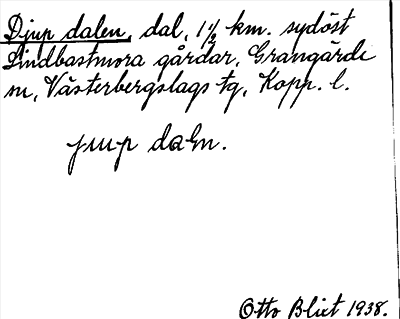 Djup dalen, dal, 1½ km. sydöst
Lindbastmora gårdar, Grangärde
sn, Västerbergslags tg, Kopp. l.
jup daln.
Otto Blixt 1938.